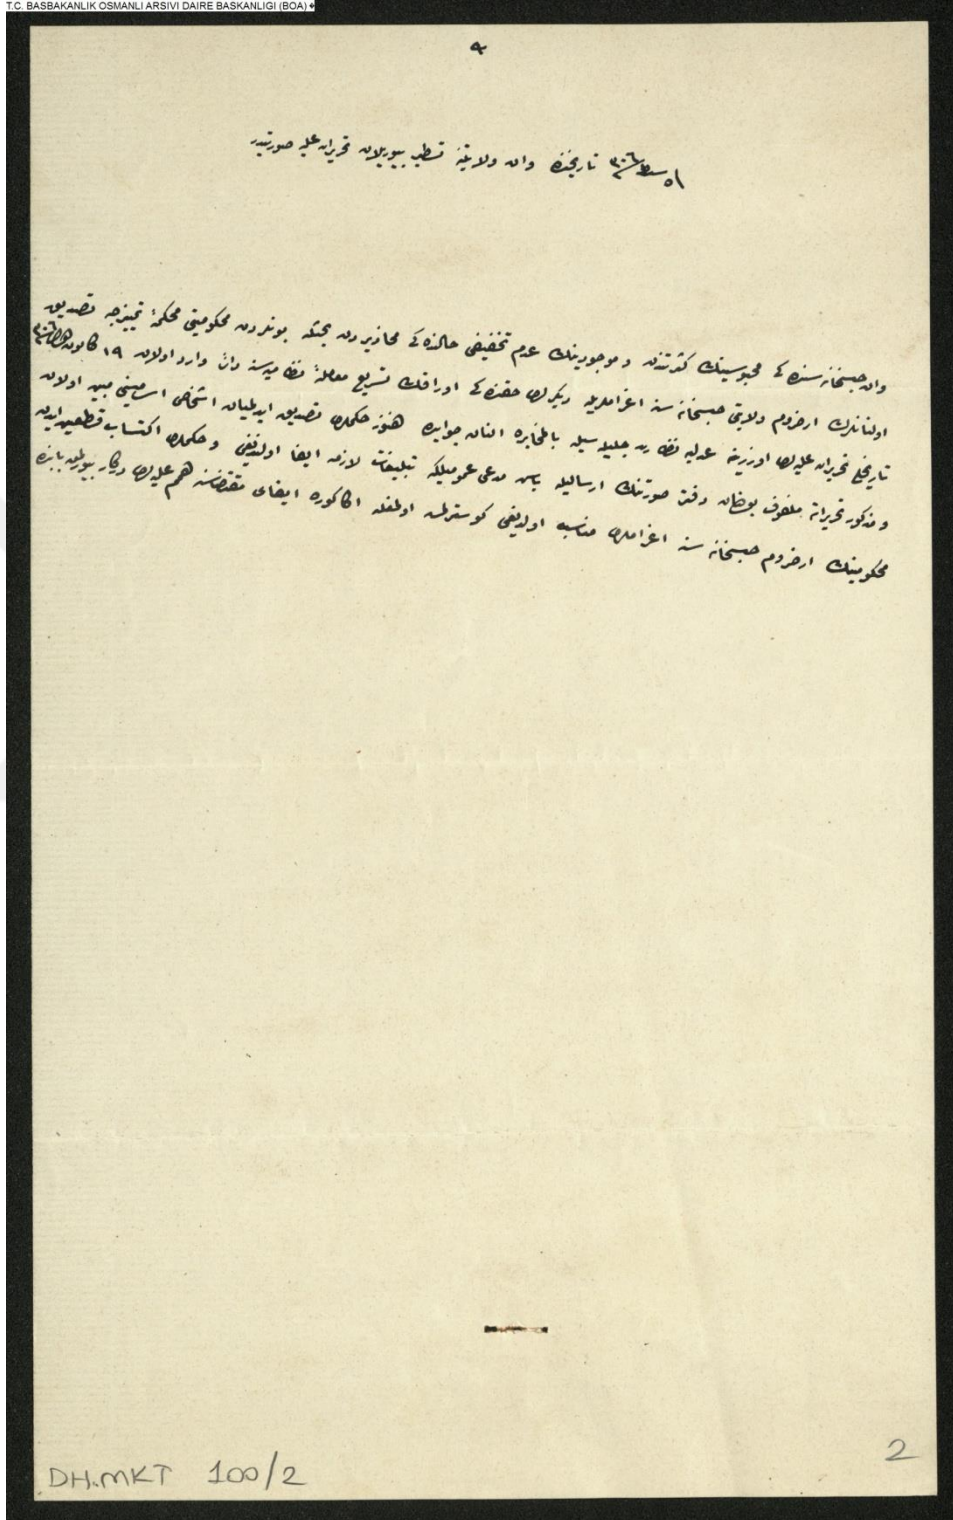 T.C. BASBAKANLIK OSMANLI ARSIVI DAIRE BASKANLIGI (BOA)
تاریخنده وان ولایتنه تسطیر بیوریلان تحریرات علیه صورتیدر
وان حبسخانه سنده کی محبوسینك کثرتندن و موجودینك عدم تخفیفی حالنده کی محاذیردن بحثله بونلردن محکومیتی محکمهٔ تمییزجه تصدیق
اولنانلرك ارضروم ولایتی حبسخانه سنه اعزاملریله دیکرلری حقنده کی اوراقك تسریع معاملهٔ نظامیه سنه دائر وارد اولان ١٩ کانون
تاریخلی تحریرات علیه لری اوزرینه عدلیه نظارت جلیله سیله بالمخابره النان جوابده هنوز حکملری تصدیق ایدلمیان اشخاص اسامیسنی مبین اولان
و مذکور تحریراته ملفوف بولنان دفتر صورتنك ارسالیله باش مدعی عمومیلکه تبلیغات لازمه ایفا اولندیغی و حکملری اکتساب قطعیت ایدن
محکومینك ارضروم حبسخانه سنه اعزاملری مناسب اولدیغی کوسترلمش اولمغله اکا کوره ایفای مقتضاسنه همم علیه لری درکار بیورلمق بابنده
DH.MKT 100/2
2